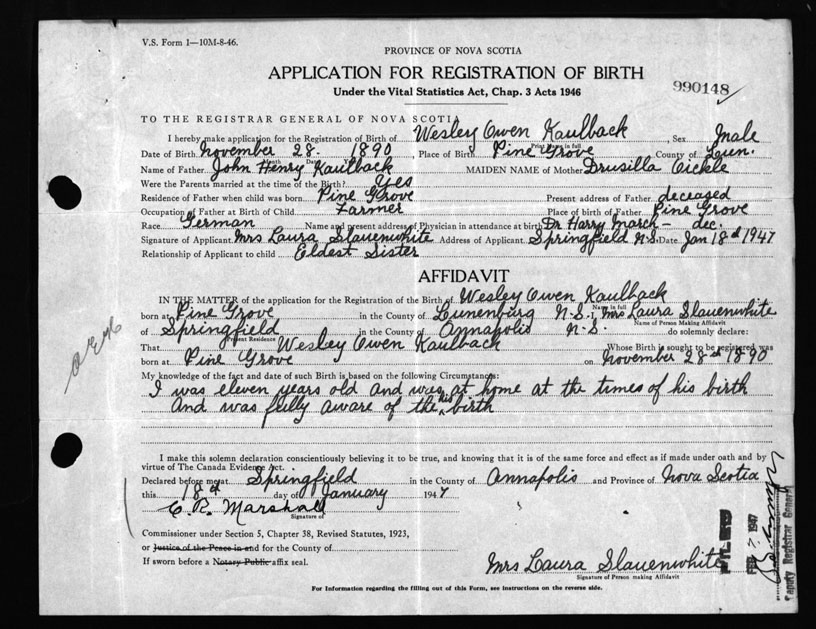 V.S. Form 1—10M-8-46.
PROVINCE OF NOVA SCOTIA
APPLICATION FOR REGISTRATION OF BIRTH
Under the Vital Statistics Act, Chap. 3 Acts 1946
990148
TO THE REGISTRAR GENERAL OF NOVA SCOTIA
I hereby make application for the Registration of Birth of Wesley Owen Kaulback, Sex Male
Print Name in full
Date of Birth November 28. 1890, Place of Birth Pine Grove County of Lun.
Month Day Year
Name of Father John Henry Kaulback MAIDEN NAME of Mother Drusilla Oickle
Were the Parents married at the time of the Birth? Yes
Residence of Father when child was born Pine Grove Present address of Father deceased
Occupation of Father at Birth of Child Farmer Place of birth of Father Pine Grove
Race German Name and present address of Physician in attendance at birth Dr Harry March — dec.
Signature of Applicant Mrs Laura Slauenwhite Address of Applicant Springfield N.S. Date Jan 18th 1947
Relationship of Applicant to child Eldest Sister
AFFIDAVIT
IN THE MATTER of the application for the Registration of the Birth of Wesley Owen Kaulback
Name in full
born at Pine Grove in the County of Lunenburg N.S. I, Mrs Laura Slauenwhite
Name of Person Making Affidavit
of Springfield in the County of Annapolis N.S. do solemnly declare:
Present Residence
That Wesley Owen Kaulback Whose Birth is sought to be registered was
born at Pine Grove on November 28th 1890
My knowledge of the fact and date of such Birth is based on the following Circumstances:
I was eleven years old and was at home at the times of his birth
And was fully aware of the his birth
I make this solemn declaration conscientiously believing it to be true, and knowing that it is of the same force and effect as if made under oath and by
virtue of The Canada Evidence Act.
Declared before me at Springfield in the County of Annapolis and Province of Nova Scotia
this 18th day of January 1947
C. R. Marshall
Signature of
Commissioner under Section 5, Chapter 38, Revised Statutes, 1923,
or Justice of the Peace in and for the County of
If sworn before a Notary Public affix seal.
Mrs Laura Slauenwhite
Signature of Person making Affidavit
For Information regarding the filling out of this Form, see instructions on the reverse side.
FEB 7 1947
Deputy Registrar General